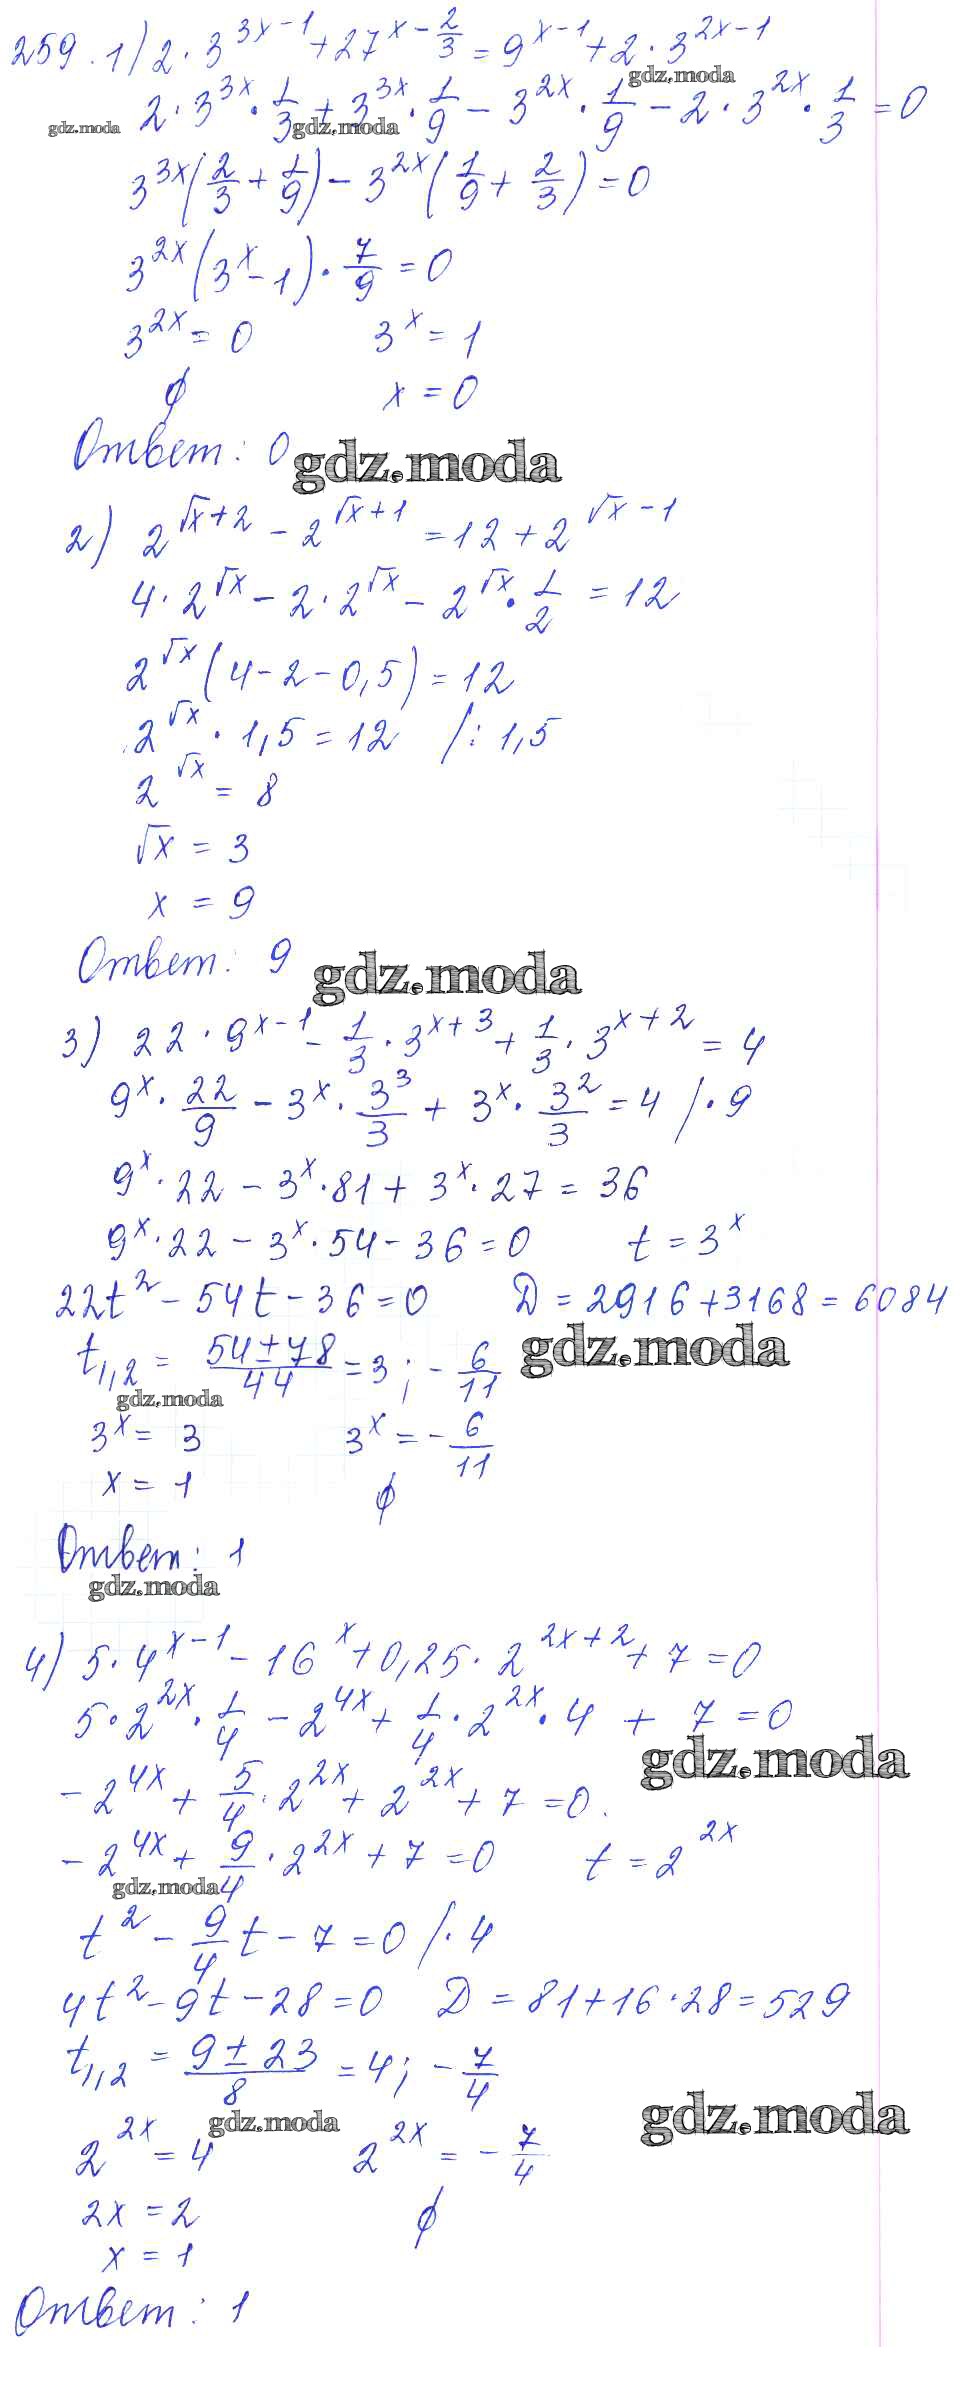 259. 1) 2·3^(3x−1) + 27^(x−2/3) = 9^(x−1) + 2·3^(2x−1)
gdz.moda
2·3^(3x)·1/3 + 3^(3x)·1/9 − 3^(2x)·1/9 − 2·3^(2x)·1/3 = 0
gdz.moda gdz.moda
3^(3x)(2/3 + 1/9) − 3^(2x)(1/9 + 2/3) = 0
3^(2x)(3^x − 1)·7/9 = 0
3^(2x) = 0 3^x = 1
∅ x = 0
Ответ: 0
gdz.moda
2) 2^(√x+2) − 2^(√x+1) = 12 + 2^(√x−1)
4·2^(√x) − 2·2^(√x) − 2^(√x)·1/2 = 12
2^(√x)(4−2−0,5) = 12
2^(√x)·1,5 = 12 /:1,5
2^(√x) = 8
√x = 3
x = 9
Ответ: 9
gdz.moda
3) 22·9^(x−1) − 1/3·3^(x+3) + 1/3·3^(x+2) = 4
9^x·22/9 − 3^x·3^3/3 + 3^x·3^2/3 = 4 /·9
9^x·22 − 3^x·81 + 3^x·27 = 36
9^x·22 − 3^x·54 − 36 = 0 t = 3^x
22t² − 54t − 36 = 0 D = 2916+3168 = 6084
gdz.moda
t₁,₂ = (54±78)/44 = 3; −6/11
gdz.moda
3^x = 3 3^x = −6/11
x = 1 ∅
Ответ: 1
gdz.moda
4) 5·4^(x−1) − 16^x + 0,25·2^(2x+2) + 7 = 0
5·2^(2x)·1/4 − 2^(4x) + 1/4·2^(2x)·4 + 7 = 0
gdz.moda
−2^(4x) + 5/4·2^(2x) + 2^(2x) + 7 = 0.
−2^(4x) + 9/4·2^(2x) + 7 = 0 t = 2^(2x)
gdz.moda
t² − 9/4t − 7 = 0 /·4
4t² − 9t − 28 = 0 D = 81+16·28 = 529
t₁,₂ = (9±23)/8 = 4; −7/4
gdz.moda gdz.moda
2^(2x) = 4 2^(2x) = −7/4
2x = 2 ∅
x = 1
Ответ: 1